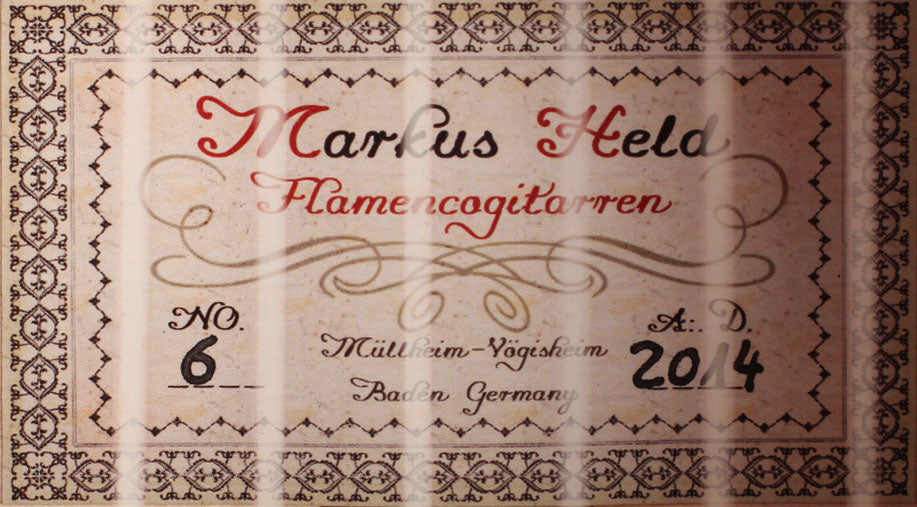 Markus Held
Flamencogitarren
NO. 6
Müllheim-Vögisheim
Baden Germany
A:. D. 2014